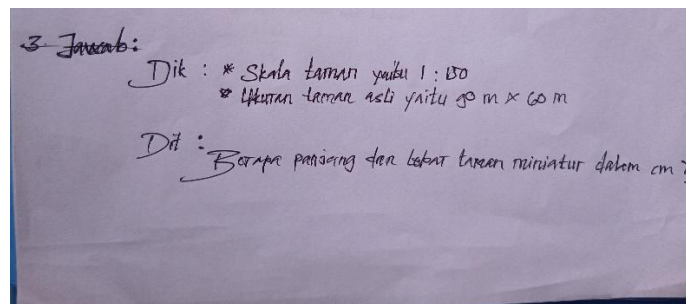 3 Jawab:
Dik : * Skala taman yaitu 1 : 150
* Ukuran taman asli yaitu 90 m × 60 m
Dit :
Berapa panjang dan lebar taman miniatur dalam cm ?